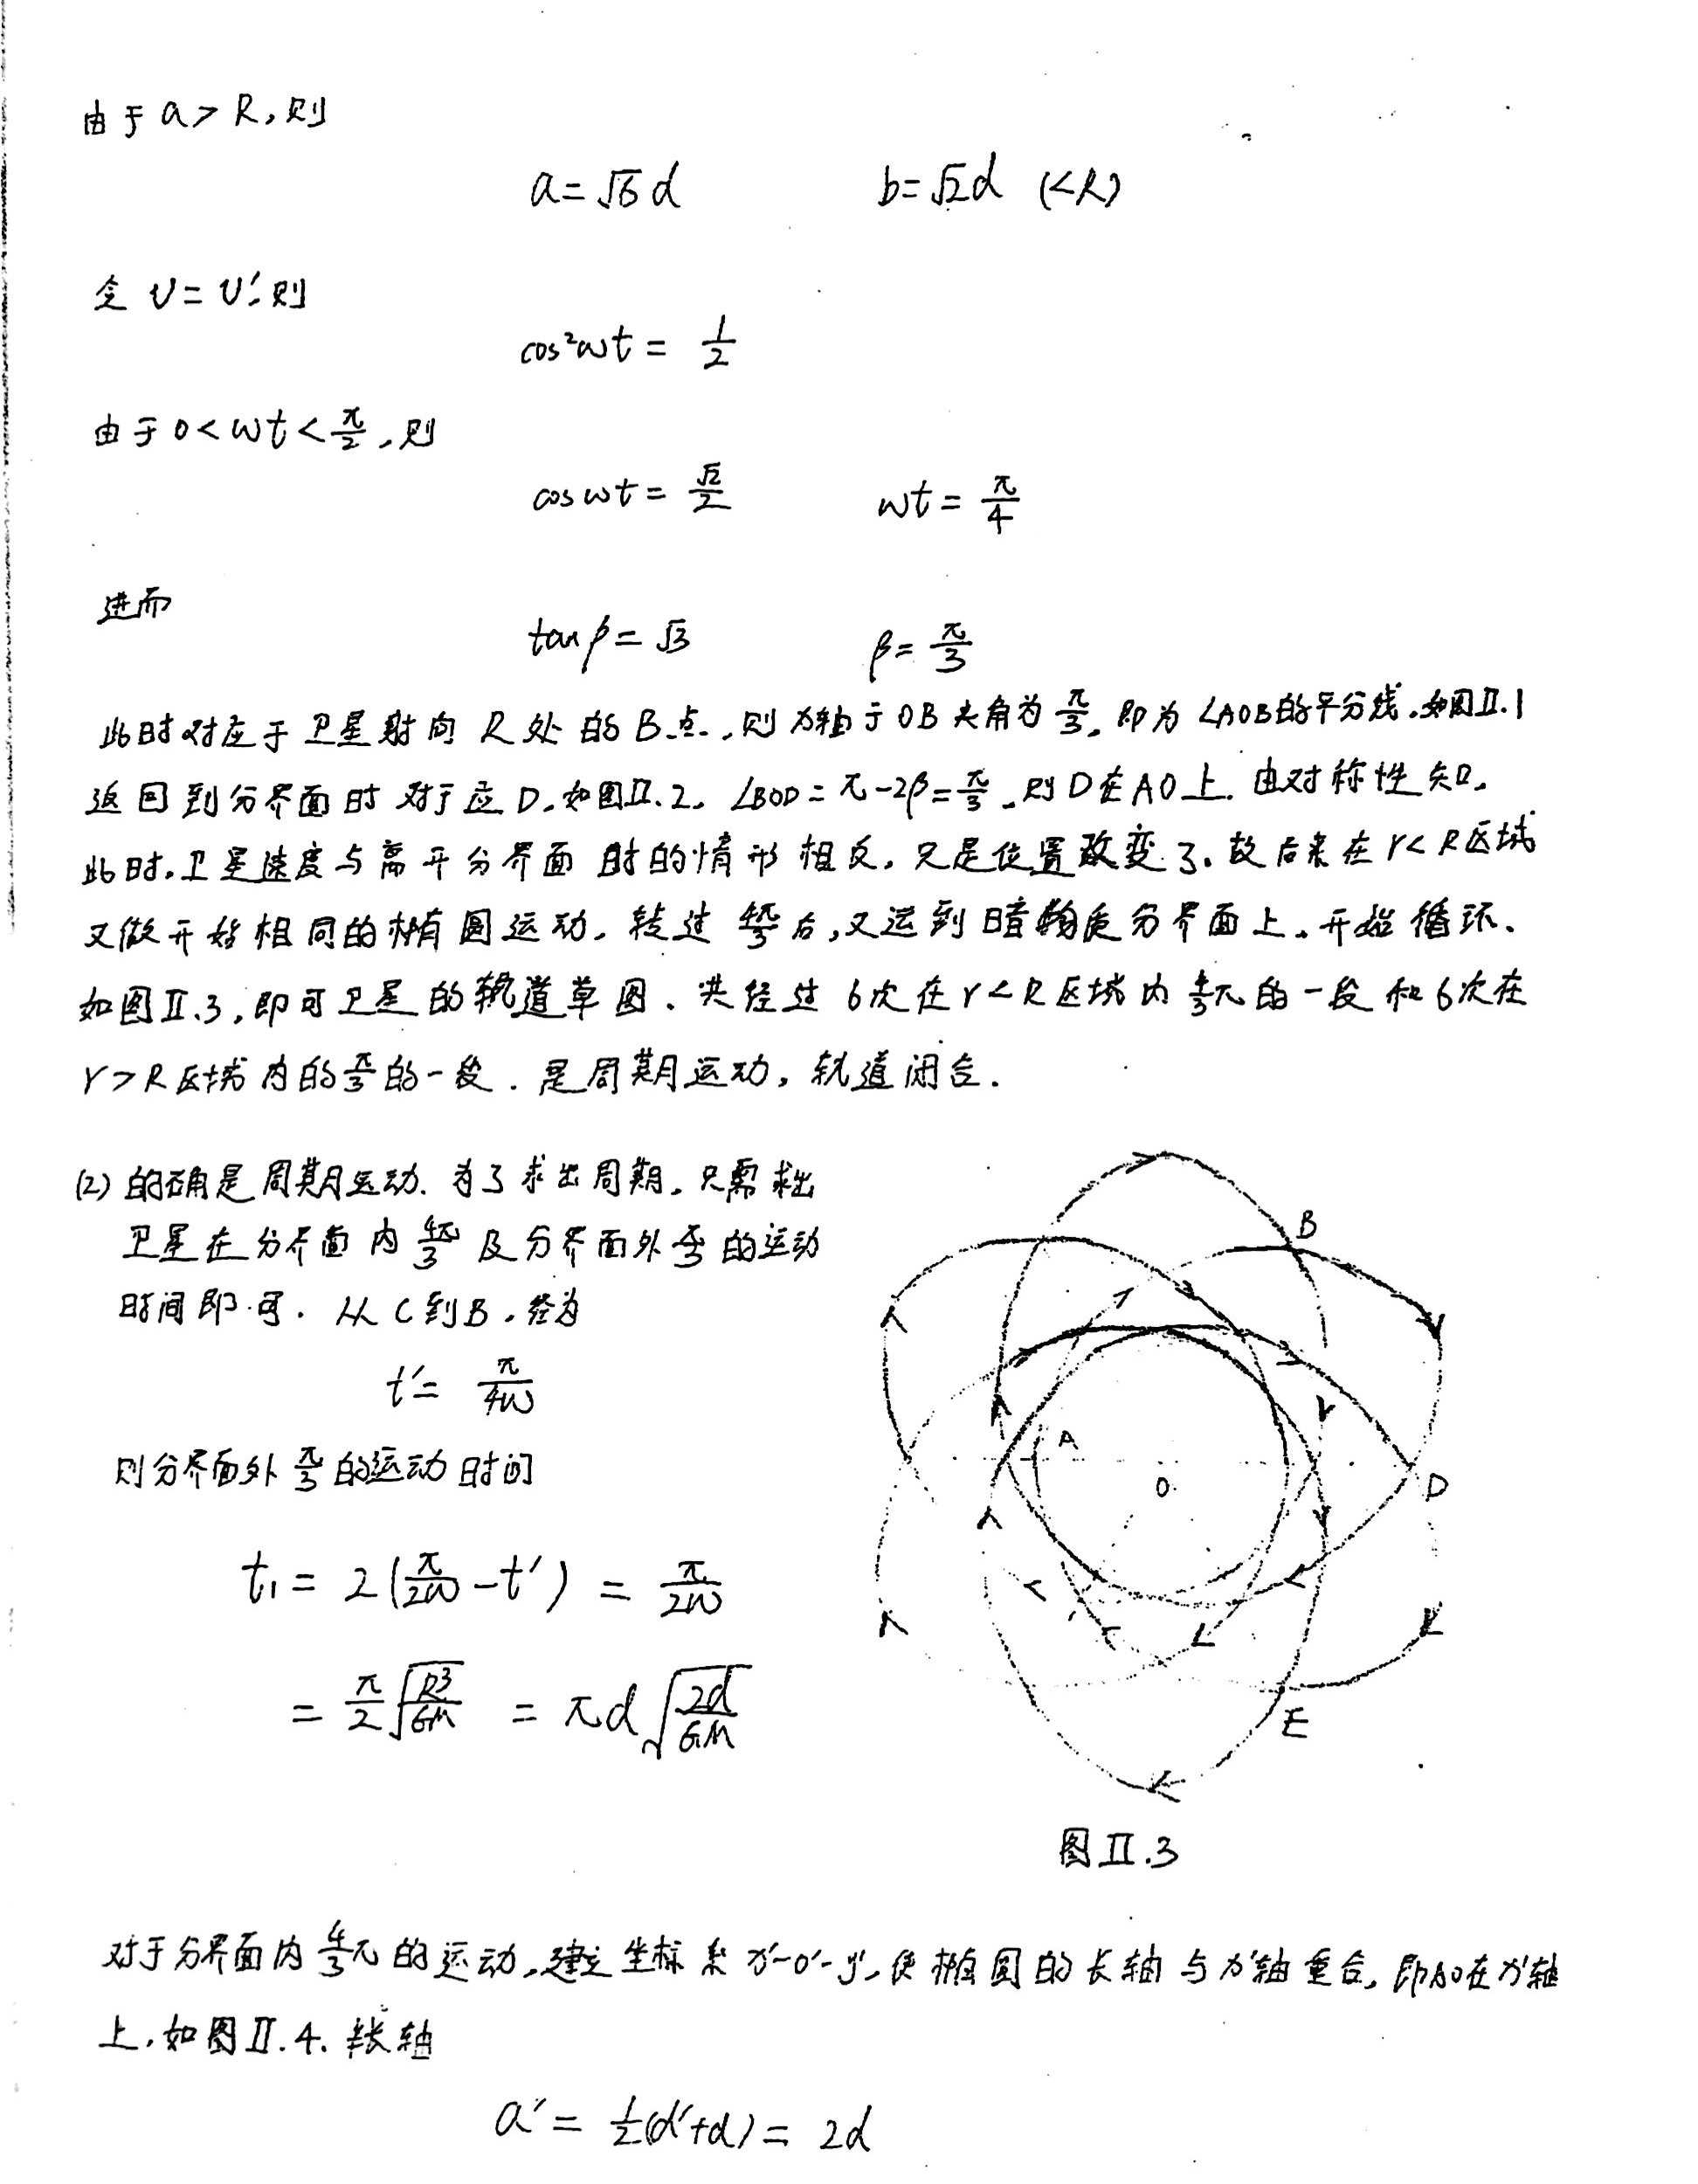 由于 a > R,则
a = √6 d b = √2 d (<R)
令 v = v′,则
cos²ωt = 1/2
由于 0 < ωt < π/2,则
cos ωt = √2/2 ωt = π/4
进而
tan β = √3 β = π/3
此时对应于卫星射向 R 处的 B 点.,则 x轴于 OB 夹角为 π/3,即为 ∠AOB的平分线.如图Ⅱ.1
返回到分界面时对于应 D.如图Ⅱ.2. ∠BOD = π-2β = π/3,则 D在AO上. 由对称性知.
此时.卫星速度与离开分界面时的情形相反.只是位置改变了.故后来在 r<R区域
又做开始相同的椭圆运动.转过 4π/3 后,又运到暗物质分界面上.开始循环.
如图Ⅱ.3,即可卫星的轨道草图.共经过 6次在 r<R区域内 4/3π 的一段和6次在
r>R区域内的 π/3 的一段.是周期运动,轨道闭合.
(2) 的确是周期运动.为了求出周期.只需求出
卫星在分界面内 4π/3 及分界面外 π/3 的运动
时间即可.从 C 到 B.经为
t′ = π/4ω
则分界面外 π/3 的运动时间
t₁ = 2(π/2ω - t′) = π/2ω
= π/2 √(R³/GM) = πd √(2d/GM)
B
A
O
D
E
图Ⅱ.3
对于分界面内 4/3π 的运动,建立坐标系 x′-o′-y′,使椭圆的长轴与x′轴重合,即AO在x′轴
上.如图Ⅱ.4.半长轴
a′ = 1/2(d′+d) = 2d